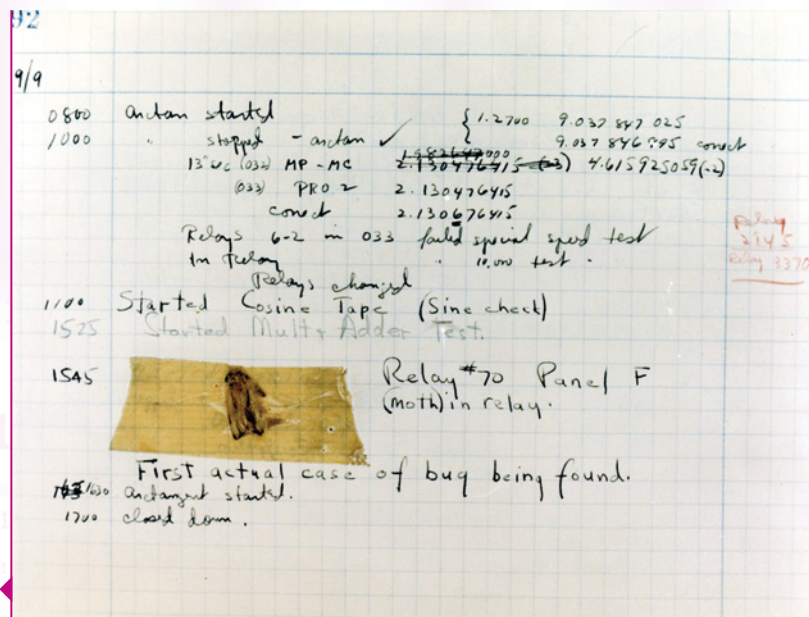 92
9/9
0800 arctan started { 1.2700 9.037 847 025
1000 " stopped - arctan ✓ 9.037 846 995 correct
13" uc (032) MP - MC 1.982647000 2.130476415 (-3) 4.615925059(-2)
(033) PRO 2 2.130476415
correct 2.130676415
Relays 6-2 in 033 failed special speed test
In Relay " 10,000 test .
Relays changed
Relay
2145
Relay 3370
1100 Started Cosine Tape (Sine check)
1525 Started Mult + Adder Test.
1545 Relay #70 Panel F
(moth) in relay.
First actual case of bug being found.
1630 arctangent started.
1700 closed down .